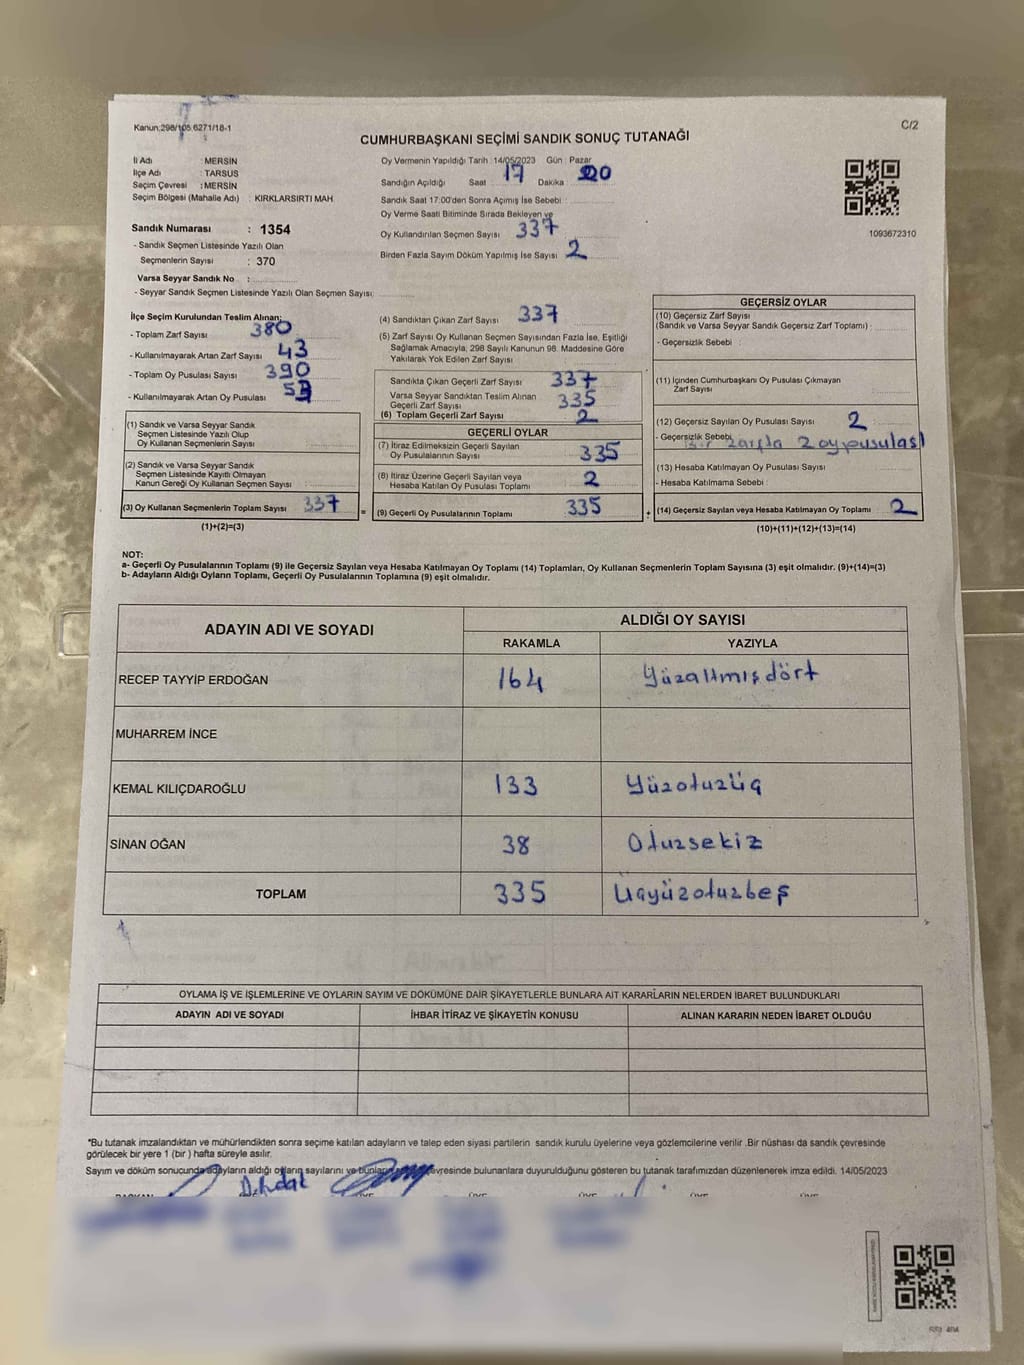 Kanun:298/105,6271/18-1
C/2
CUMHURBAŞKANI SEÇİMİ SANDIK SONUÇ TUTANAĞI
İli Adı : MERSİN
İlçe Adı : TARSUS
Seçim Çevresi : MERSİN
Seçim Bölgesi (Mahalle Adı) : KIRKLARSIRTI MAH.
Sandık Numarası : 1354
- Sandık Seçmen Listesinde Yazılı Olan
Seçmenlerin Sayısı : 370
Varsa Seyyar Sandık No :
- Seyyar Sandık Seçmen Listesinde Yazılı Olan Seçmen Sayısı:
Oy Vermenin Yapıldığı Tarih :14/05/2023 Gün : Pazar
Sandığın Açıldığı Saat 17 Dakika 20
Sandık Saat 17:00'den Sonra Açımış İse Sebebi
Oy Verme Saati Bitiminde Sırada Bekleyen ve
Oy Kullandırılan Seçmen Sayısı 337
Birden Fazla Sayım Döküm Yapılmış İse Sayısı 2
1093672310
İlçe Seçim Kurulundan Teslim Alınan:
- Toplam Zarf Sayısı 380
- Kullanılmayarak Artan Zarf Sayısı 43
- Toplam Oy Pusulası Sayısı 390
- Kullanılmayarak Artan Oy Pusulası
(1) Sandık ve Varsa Seyyar Sandık
Seçmen Listesinde Yazılı Olup
Oy Kullanan Seçmenlerin Sayısı
(2) Sandık ve Varsa Seyyar Sandık
Seçmen Listesinde Kayıtlı Olmayan
Kanun Gereği Oy Kullanan Seçmen Sayısı :
(3) Oy Kullanan Seçmenlerin Toplam Sayısı 337
(1)+(2)=(3)
=
(4) Sandıktan Çıkan Zarf Sayısı 337
(5) Zarf Sayısı Oy Kullanan Seçmen Sayısından Fazla İse, Eşitliği
Sağlamak Amacıyla, 298 Sayılı Kanunun 98. Maddesine Göre
Yakılarak Yok Edilen Zarf Sayısı
Sandıkta Çıkan Geçerli Zarf Sayısı 337
Varsa Seyyar Sandıktan Teslim Alınan
Geçerli Zarf Sayısı 335
(6) Toplam Geçerli Zarf Sayısı 2
GEÇERLİ OYLAR
(7) İtiraz Edilmeksizin Geçerli Sayılan
Oy Pusulalarının Sayısı 335
(8) İtiraz Üzerine Geçerli Sayılan veya
Hesaba Katılan Oy Pusulası Toplamı 2
(9) Geçerli Oy Pusulalarının Toplamı 335
+
GEÇERSİZ OYLAR
(10) Geçersiz Zarf Sayısı
(Sandık ve Varsa Seyyar Sandık Geçersiz Zarf Toplamı) :
- Geçersizlik Sebebi
(11) İçinden Cumhurbaşkanı Oy Pusulası Çıkmayan
Zarf Sayısı
(12) Geçersiz Sayılan Oy Pusulası Sayısı 2
- Geçersizlik Sebebi Bir zarfda 2 oy pusulası
(13) Hesaba Katılmayan Oy Pusulası Sayısı
- Hesaba Katılmama Sebebi
(14) Geçersiz Sayılan veya Hesaba Katılmayan Oy Toplamı 2
(10)+(11)+(12)+(13)=(14)
NOT:
a- Geçerli Oy Pusulalarının Toplamı (9) ile Geçersiz Sayılan veya Hesaba Katılmayan Oy Toplamı (14) Toplamları, Oy Kullanan Seçmenlerin Toplam Sayısına (3) eşit olmalıdır. (9)+(14)=(3)
b- Adayların Aldığı Oyların Toplamı, Geçerli Oy Pusulalarının Toplamına (9) eşit olmalıdır.
ADAYIN ADI VE SOYADI
ALDIĞI OY SAYISI
RAKAMLA YAZIYLA
RECEP TAYYİP ERDOĞAN 164 Yüzaltmışdört
MUHARREM İNCE
KEMAL KILIÇDAROĞLU 133 Yüzotuzüç
SİNAN OĞAN 38 Otuzsekiz
TOPLAM 335 Üçyüzotuzbeş
OYLAMA İŞ VE İŞLEMLERİNE VE OYLARIN SAYIM VE DÖKÜMÜNE DAİR ŞİKAYETLERLE BUNLARA AİT KARARLARIN NELERDEN İBARET BULUNDUKLARI
ADAYIN ADI VE SOYADI İHBAR İTİRAZ VE ŞİKAYETİN KONUSU ALINAN KARARIN NEDEN İBARET OLDUĞU
*Bu tutanak imzalandıktan ve mühürlendikten sonra seçime katılan adayların ve talep eden siyasi partilerin sandık kurulu üyelerine veya gözlemcilerine verilir .Bir nüshası da sandık çevresinde
görülecek bir yere 1 (bir ) hafta süreyle asılır.
Sayım ve döküm sonucunda adayların aldığı oyların sayılarını ve bunların çevresinde bulunanlara duyurulduğunu gösteren bu tutanak tarafımızdan düzenlenerek imza edildi. 14/05/2023